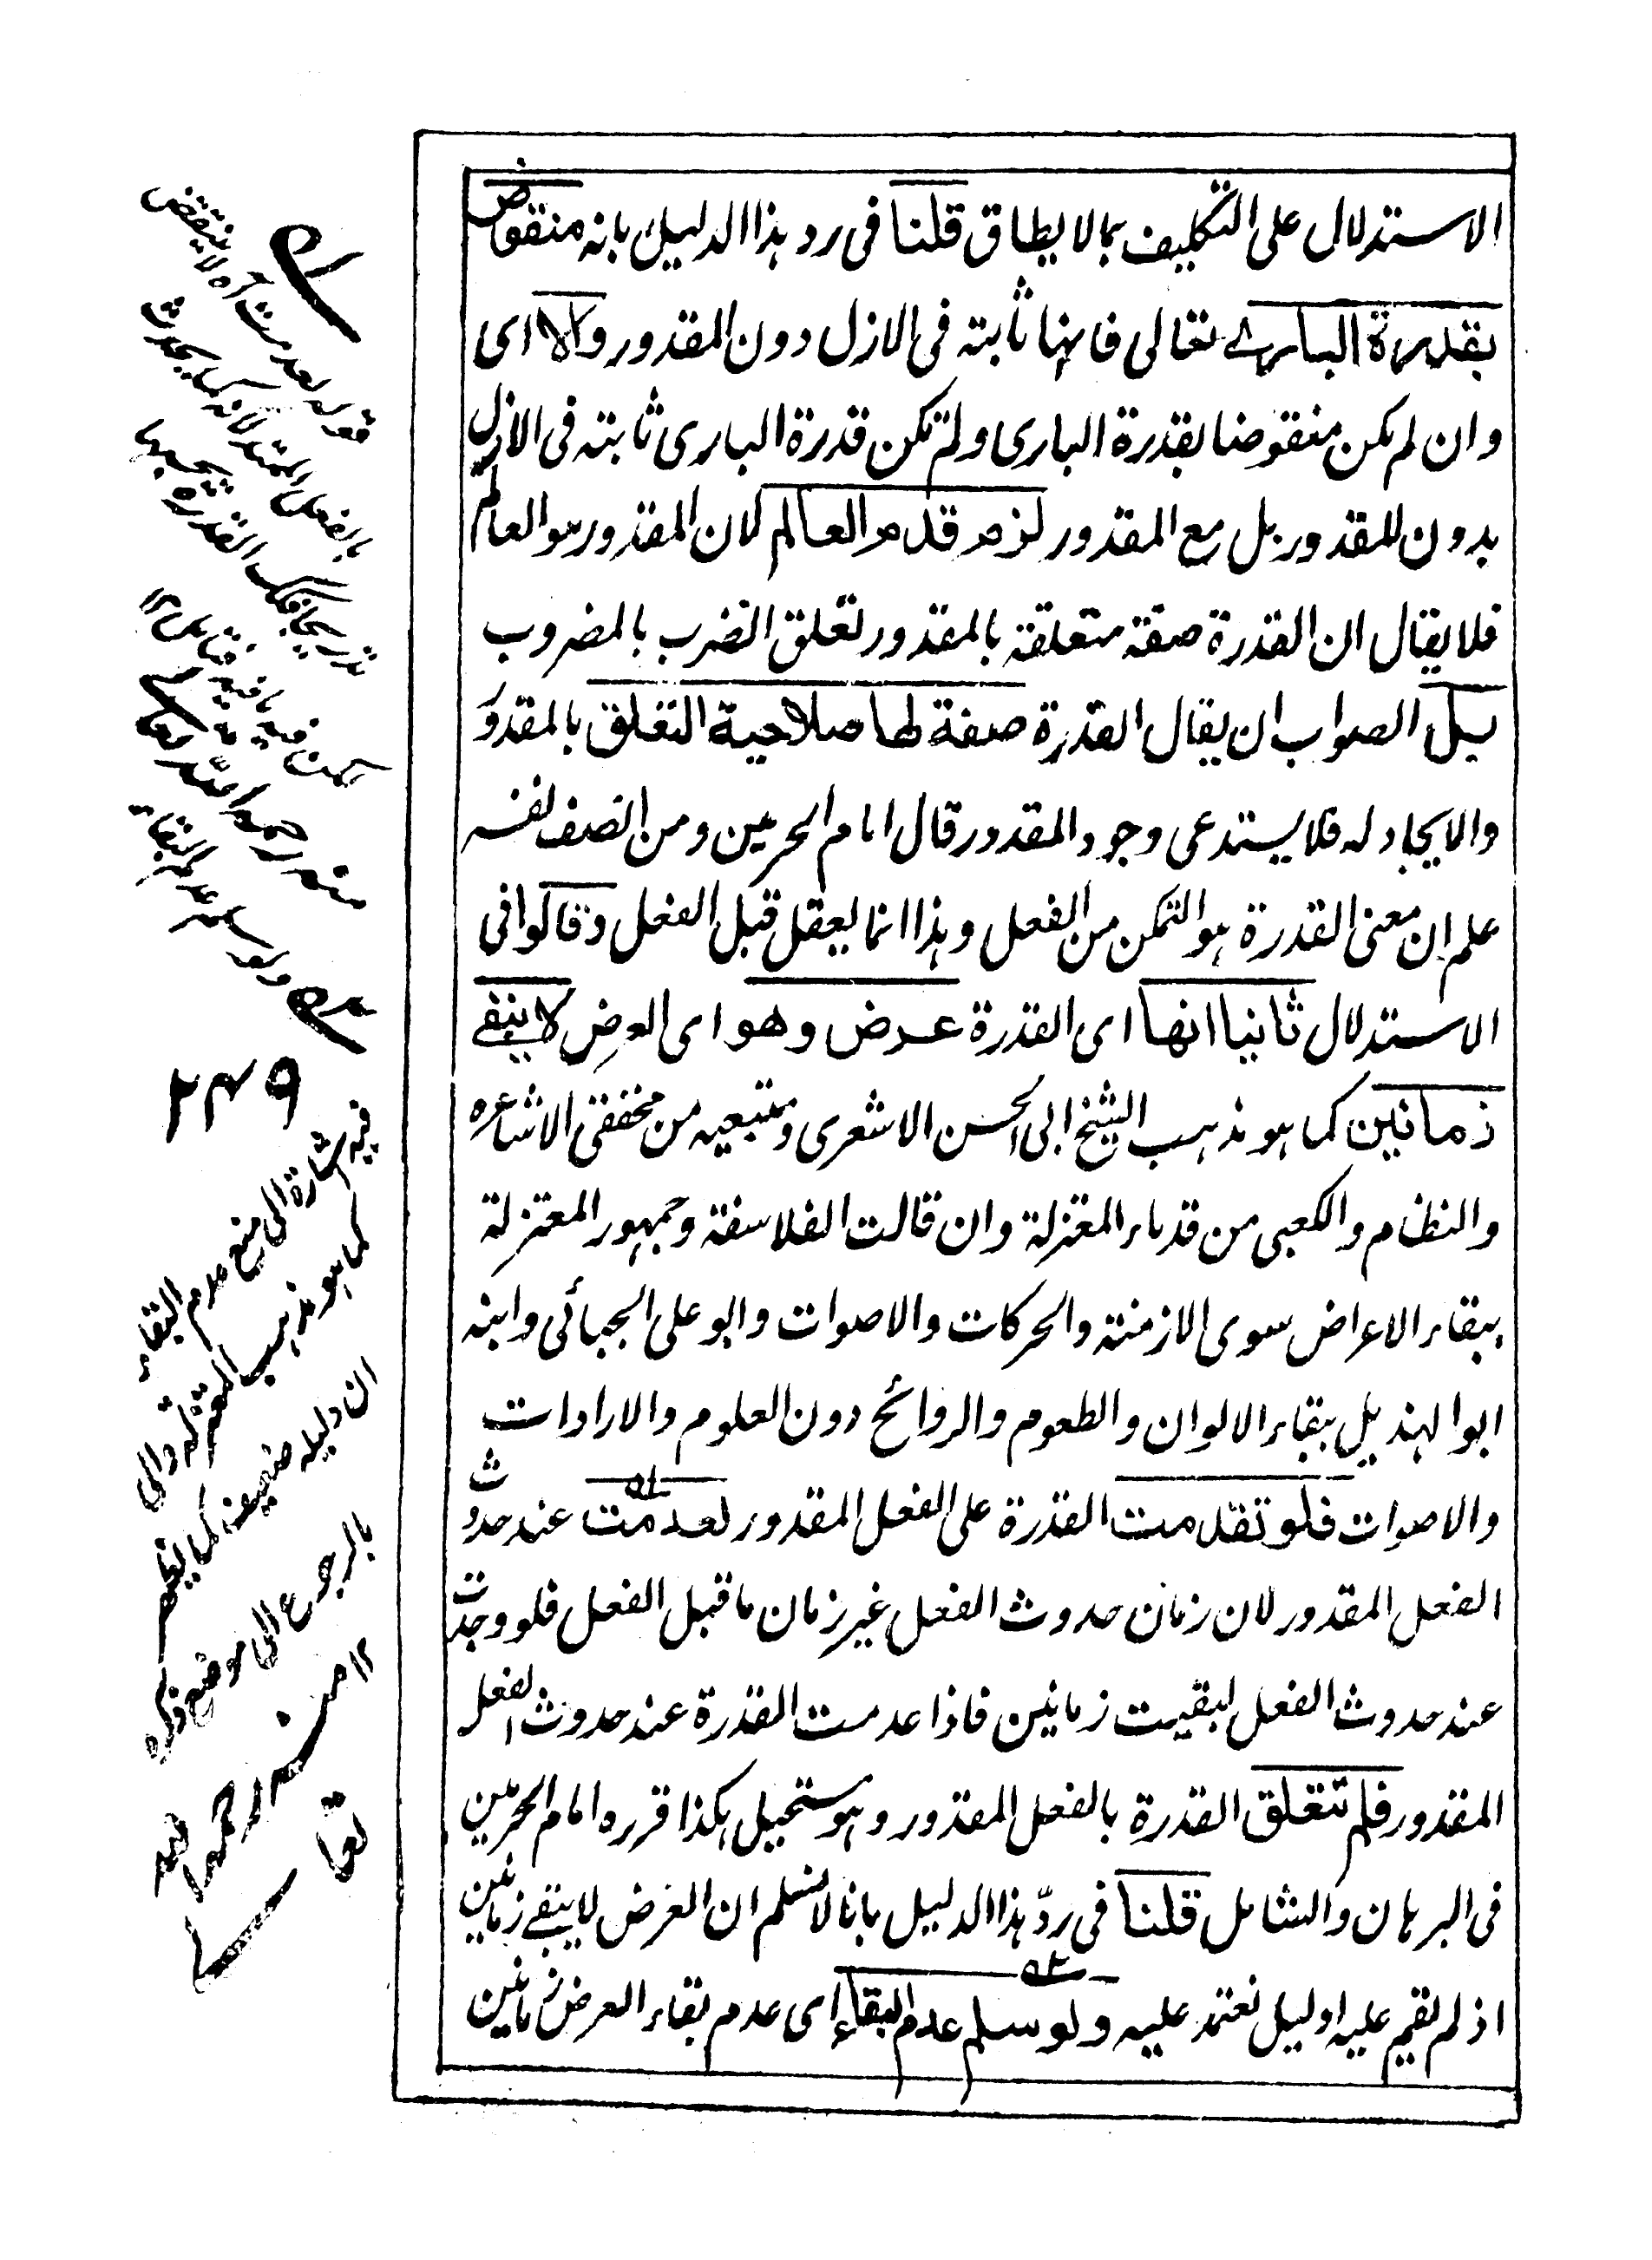 الاستدلال على التكليف بمالا يطاق قلنا فى رد هذا الدليل بانه منقوض
بقدرة البارے تعالى فانها ثابتة فى الازل دون المقدور والا اى
وان لم يكن منقوضا بقدرة البارى ولم تكن قدرة البارى ثابتة فى الازل
بدون المقدور بل مع المقدور لزم قدم العالم لان المقدور هو العالم
فلا يقال ان القدرة صفة متعلقة بالمقدور تعلق الضرب بالمضروب
بل الصواب ان يقال القدرة صفة لها صلاحية التعلق بالمقدور
والايجاد له فلا يستدعى وجود المقدور قال امام الحرمين ومن انصف نفسه
علم ان معنى القدرة هو التمكن من الفعل وهذا انما يعقل قبل الفعل وقالوا فى
الاستدلال ثانيا انها اى القدرة عرض وهو اى العرض لا يبقے
زمانين كما هو مذهب الشيخ ابى الحسن الاشعرى ومتبعيه من محققى الاشاعره
والنظام والكعبى من قدماء المعتزلة وان قالت الفلاسفة وجمهور المعتزلة
ببقاء الاعراض سوى الازمنة والحركات والاصوات وابو على الجبائى وابنه
ابو الهذيل ببقاء الالوان والطعوم والروائح دون العلوم والارادات
والاصوات فلو تقدمت القدرة على الفعل المقدور لعدمت عند حدوث
الفعل المقدور لان زمان حدوث الفعل غير زمان ما قبل الفعل فلو وجدت
عند حدوث الفعل لبقيت زمانين فاذا عدمت القدرة عند حدوث الفعل
المقدور فلم تتعلق القدرة بالفعل المقدور وهو مستحيل هكذا قرره امام الحرمين
فى البرهان والشامل قلنا فى ردّ هذا الدليل بانا لا نسلم ان العرض لا يبقے زمانين
اذ لم نقيم عليه دليل نعتمد عليه ولو سلم عدم البقاء اى عدم بقاء العرض زمانين
قوله لعدمت آه لا ينتقض
منه رحمه الله تعالى
قوله ولو سلم عدم البقاء
٢٤٩
فيه اشارة الى منع عدم البقاء
كما هو مذهب المعتزلة والى
ان دليله ضعيف كما يعلم
بالرجوع الى موضع ذكره
١٢ منه رحمه الله
تعالى